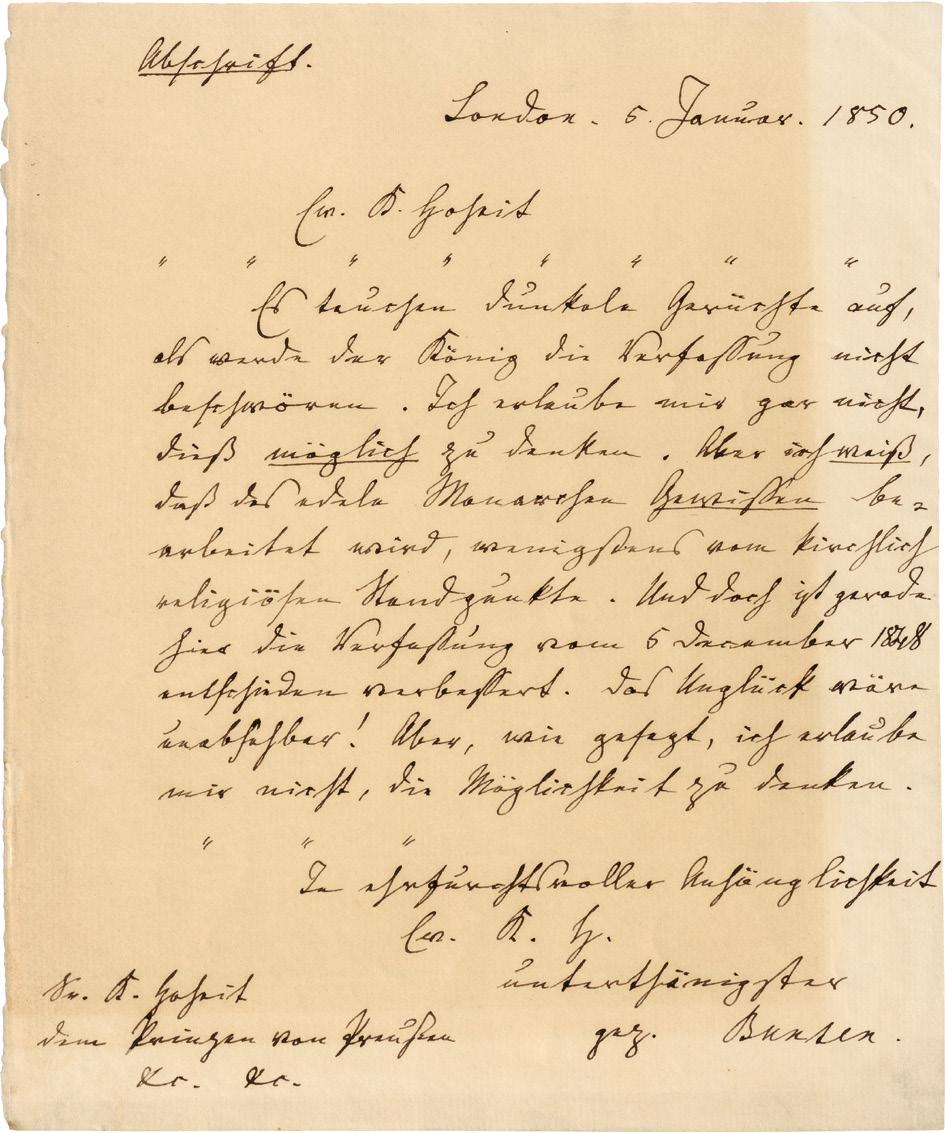 Abschrift.
London. 5. Januar. 1850.
Ew. K. Hoheit
" " " " " " " "
Es tauchen dunkele Gerüchte auf,
als werde der König die Verfassung nicht
beschwören. Ich erlaube mir gar nicht,
dieß möglich zu denken. Aber ich weiß,
daß des edeln Monarchen Gewissen be-
arbeitet wird, wenigstens vom kirchlich
religiösen Standpunkte. Und doch ist gerade
hier die Verfassung vom 5 December 1848
entschieden verbessert. Das Unglück wäre
unabsehbar! Aber, wie gesagt, ich erlaube
mir nicht, die Möglichkeit zu denken.
" " "
In ehrfurchtsvoller Anhänglichkeit
Ew. K. H.
unterthänigster
gez. Bunsen.
Sr. K. Hoheit
dem Prinzen von Preußen
&c. &c.